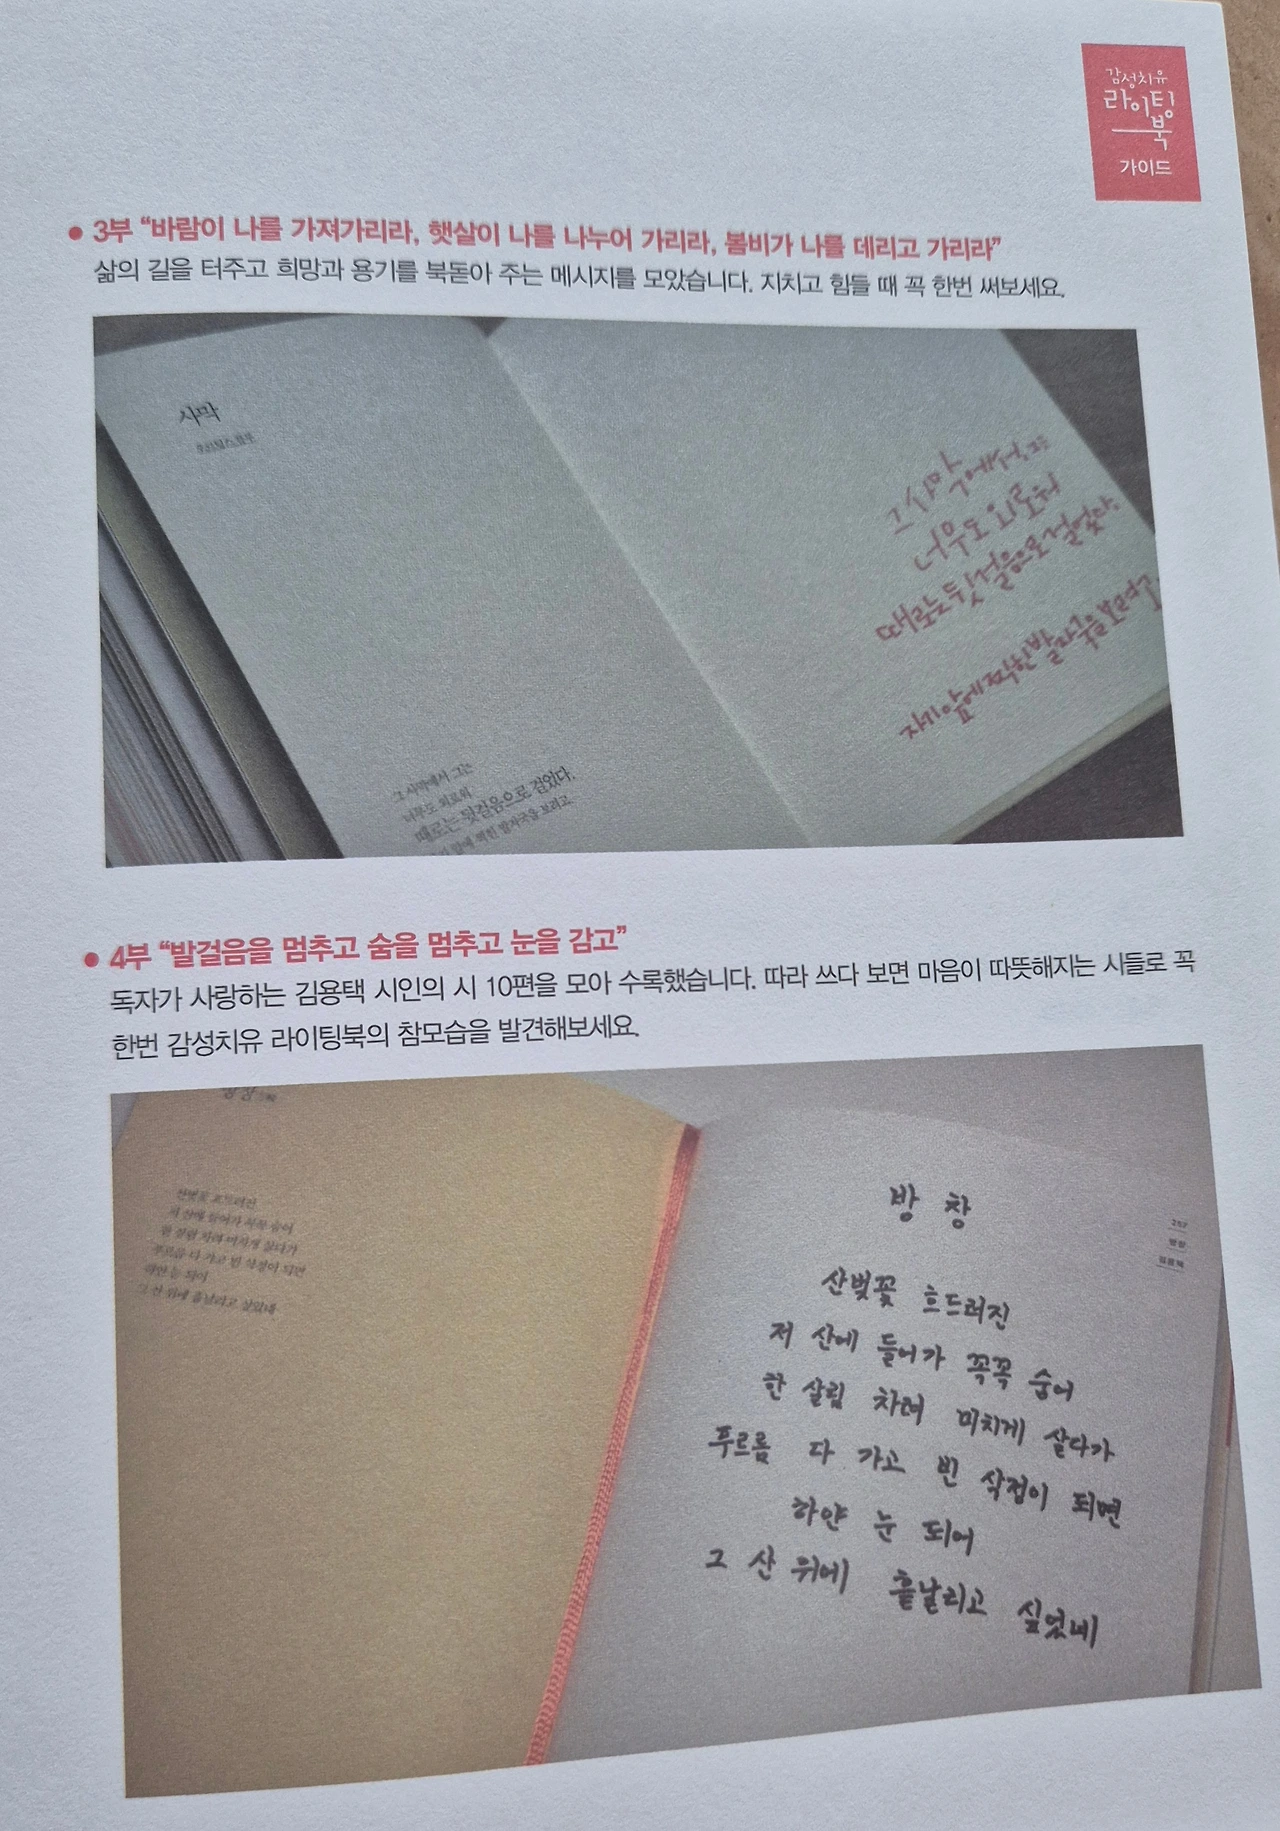 감성치유
라이팅
북
가이드
• 3부 “바람이 나를 가져가리라, 햇살이 나를 나누어 가리라, 봄비가 나를 데리고 가리라”
삶의 길을 터주고 희망과 용기를 북돋아 주는 메시지를 모았습니다. 지치고 힘들 때 꼭 한번 써보세요.
사막
그 사막에서 그는
너무도 외로워
때로는 뒷걸음으로 걸었다.
앞에 찍힌 발자국을 보려고
그 사막에서 그는
너무도 외로워
때로는 뒷걸음으로 걸었다.
자기 앞에 찍힌 발자국을 보려고
• 4부 “발걸음을 멈추고 숨을 멈추고 눈을 감고”
독자가 사랑하는 김용택 시인의 시 10편을 모아 수록했습니다. 따라 쓰다 보면 마음이 따뜻해지는 시들로 꼭
한번 감성치유 라이팅북의 참모습을 발견해보세요.
방창
산벚꽃 흐드러진
저 산에 들어가 꼭꼭 숨어
한 살림 차려 미치게 살다가
푸르름 다 가고 빈 삭정이 되면
하얀 눈 되어
그 산 위에 흩날리고 싶었네
방 창
산벚꽃 흐드러진
저 산에 들어가 꼭꼭 숨어
한 살림 차려 미치게 살다가
푸르름 다 가고 빈 삭정이 되면
하얀 눈 되어
그 산 위에 흩날리고 싶었네
257
방창
김용택